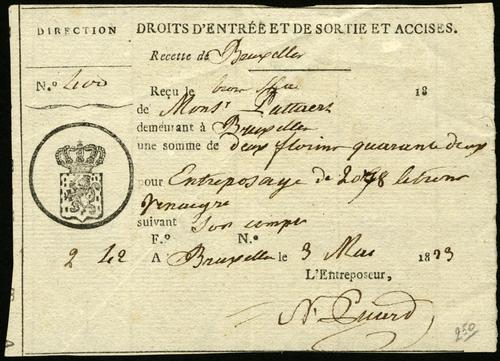 DIRECTION
DROITS D'ENTRÉE ET DE SORTIE ET ACCISES.
Recette de Bruxelles
N.º 400
Reçu le 18
de Monsr
demeurant à Bruxelles
une somme de deux florins quarante deux
pour Entreposage de
Vinaigre
suivant Son compte
F.º N.º
2 42 A Bruxelles le 3 Mai 1823
L'Entreposeur,
250